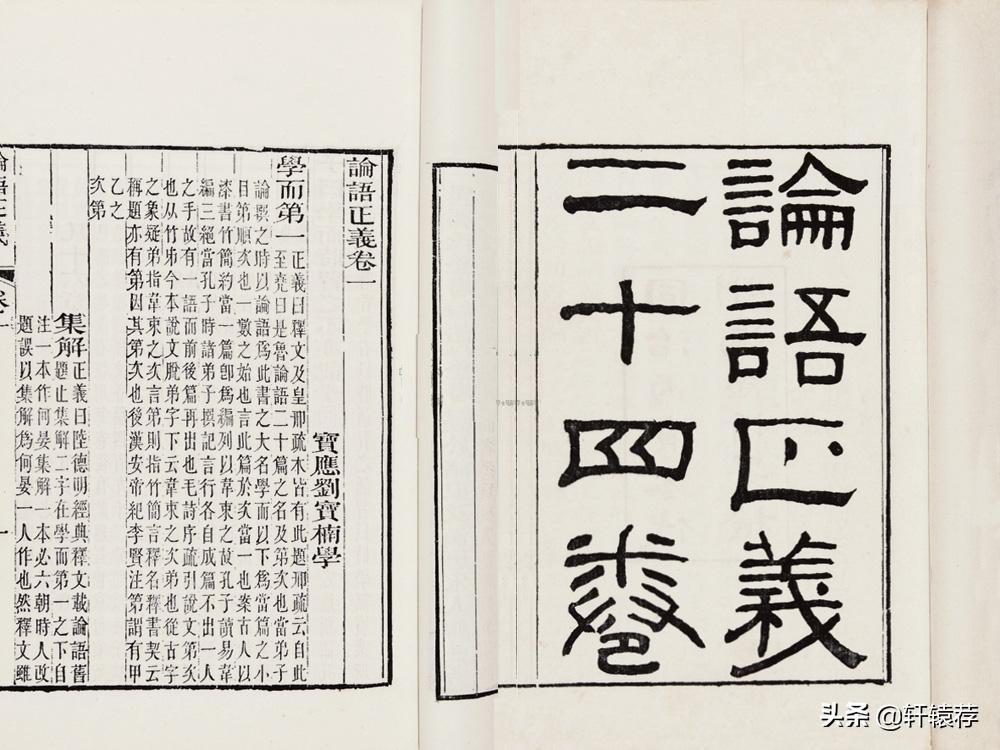 論語正義
二十四卷
論語正義卷一
寶應劉寶楠學
學而第一
正義曰釋文及皇邢疏本皆有此題邢疏云自此
至堯曰是魯論語二十篇之名及第次也當弟子
論譔之時以論語爲此書之大名學而以下爲當篇之小
目第順次也一數之始也言此篇於次當一也案古人以
漆書竹簡約當一篇卽爲編列以韋束之故孔子讀易韋
編三絕當孔子時諸弟子撰記言行各自成篇不出一人
之手故有一語而前後篇再出也毛詩序疏引說文第次
也从竹弟今本說文脫弟字下云韋束之次弟也從古字
之象疑弟指韋束之次言第則指竹簡言釋名釋書契云
稱題亦有第因其第次也後漢安帝紀李賢注第謂有甲
乙之
次第
集解
正義曰陸德明經典釋文載論語舊
題止集解二字在學而第一之下自
注一本作何晏集解一本必六朝時人改
題誤以集解爲何晏一人作也然釋文雖
論語正義 卷一 一
头条 @轩辕荐